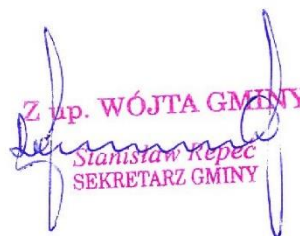 Z up. WÓJTA GMINY
Stanisław Repeć
SEKRETARZ GMINY